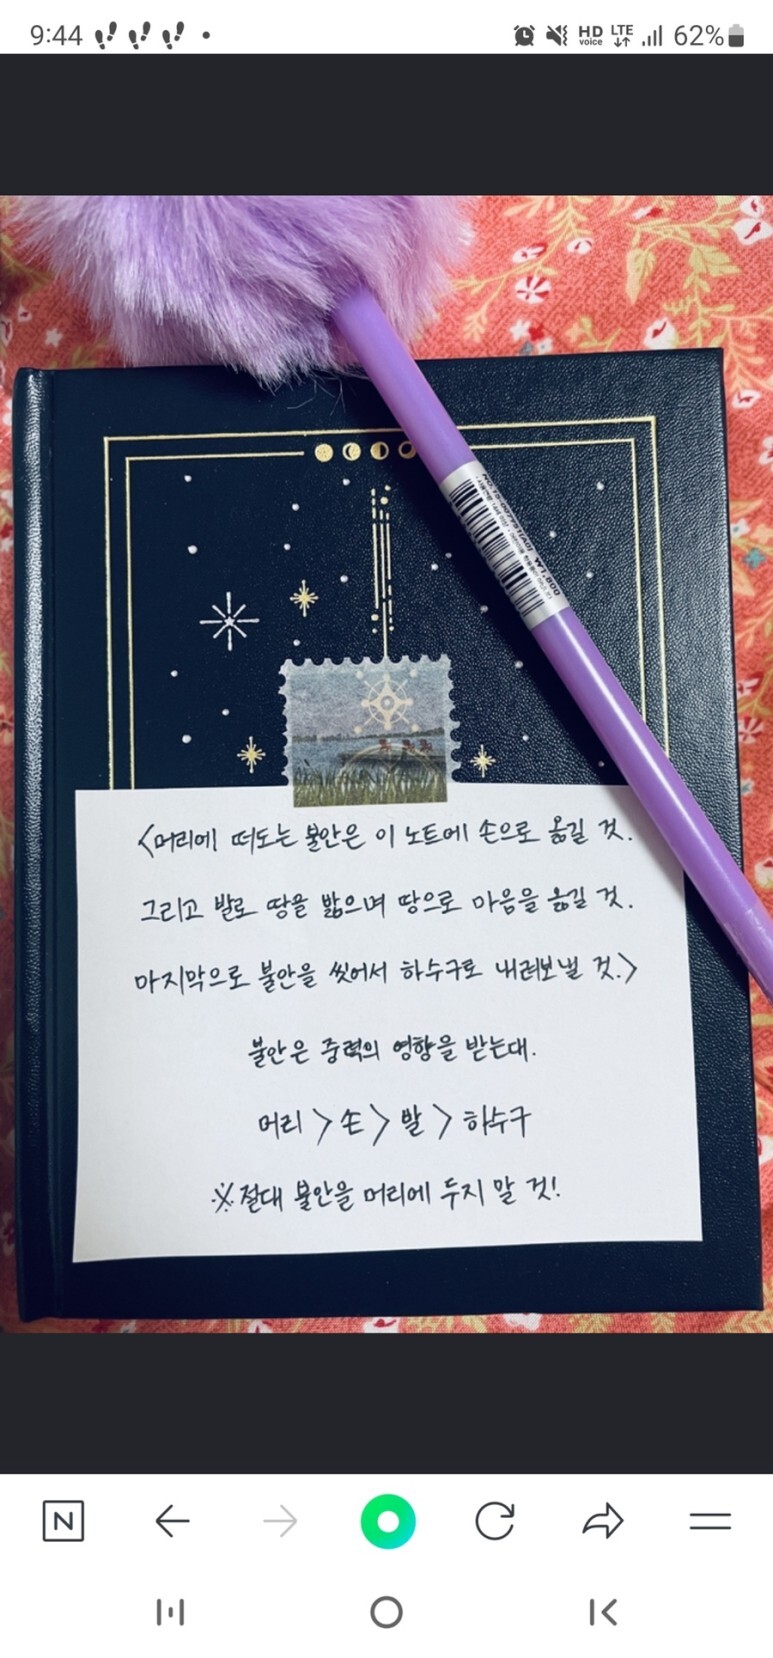 9:44
HD voice
LTE
62%
W1-800
<머리에 떠도는 불안은 이 노트에 손으로 옮길 것.
그리고 발로 땅을 밟으며 땅으로 마음을 옮길 것.
마지막으로 불안을 씻어서 하수구로 내려보낼 것.>
불안은 중력의 영향을 받는대.
머리 > 손 > 발 > 하수구
※절대 불안을 머리에 두지 말 것!
N